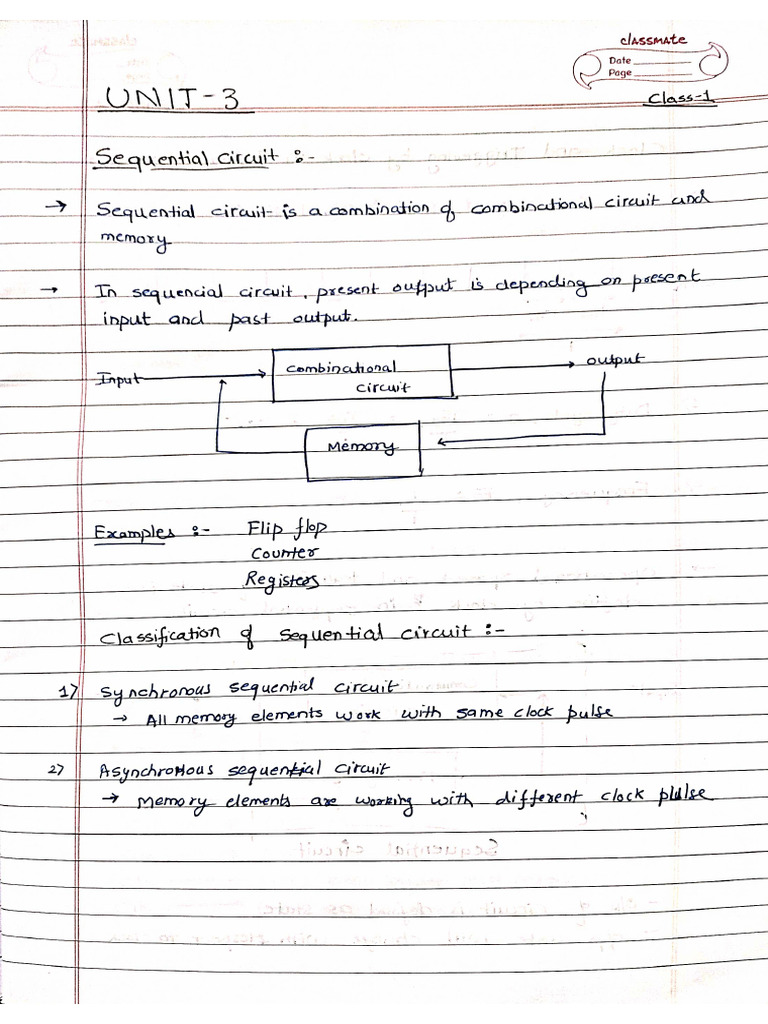 classmate
Date
Page
UNIT-3
Class-1
Sequential Circuit :-
→ Sequential circuit is a combination of combinational circuit and
memory
→ In sequencial circuit, present output is depending on present
input and past output.
Input
Combinational
circuit
output
Memory
Examples :- Flip flop
Counter
Registers
Classification of sequential circuit :-
1) Synchronous sequential circuit
→ All memory elements work with same clock pulse
2) Asynchronous sequential circuit
→ Memory elements are working with different clock pulse